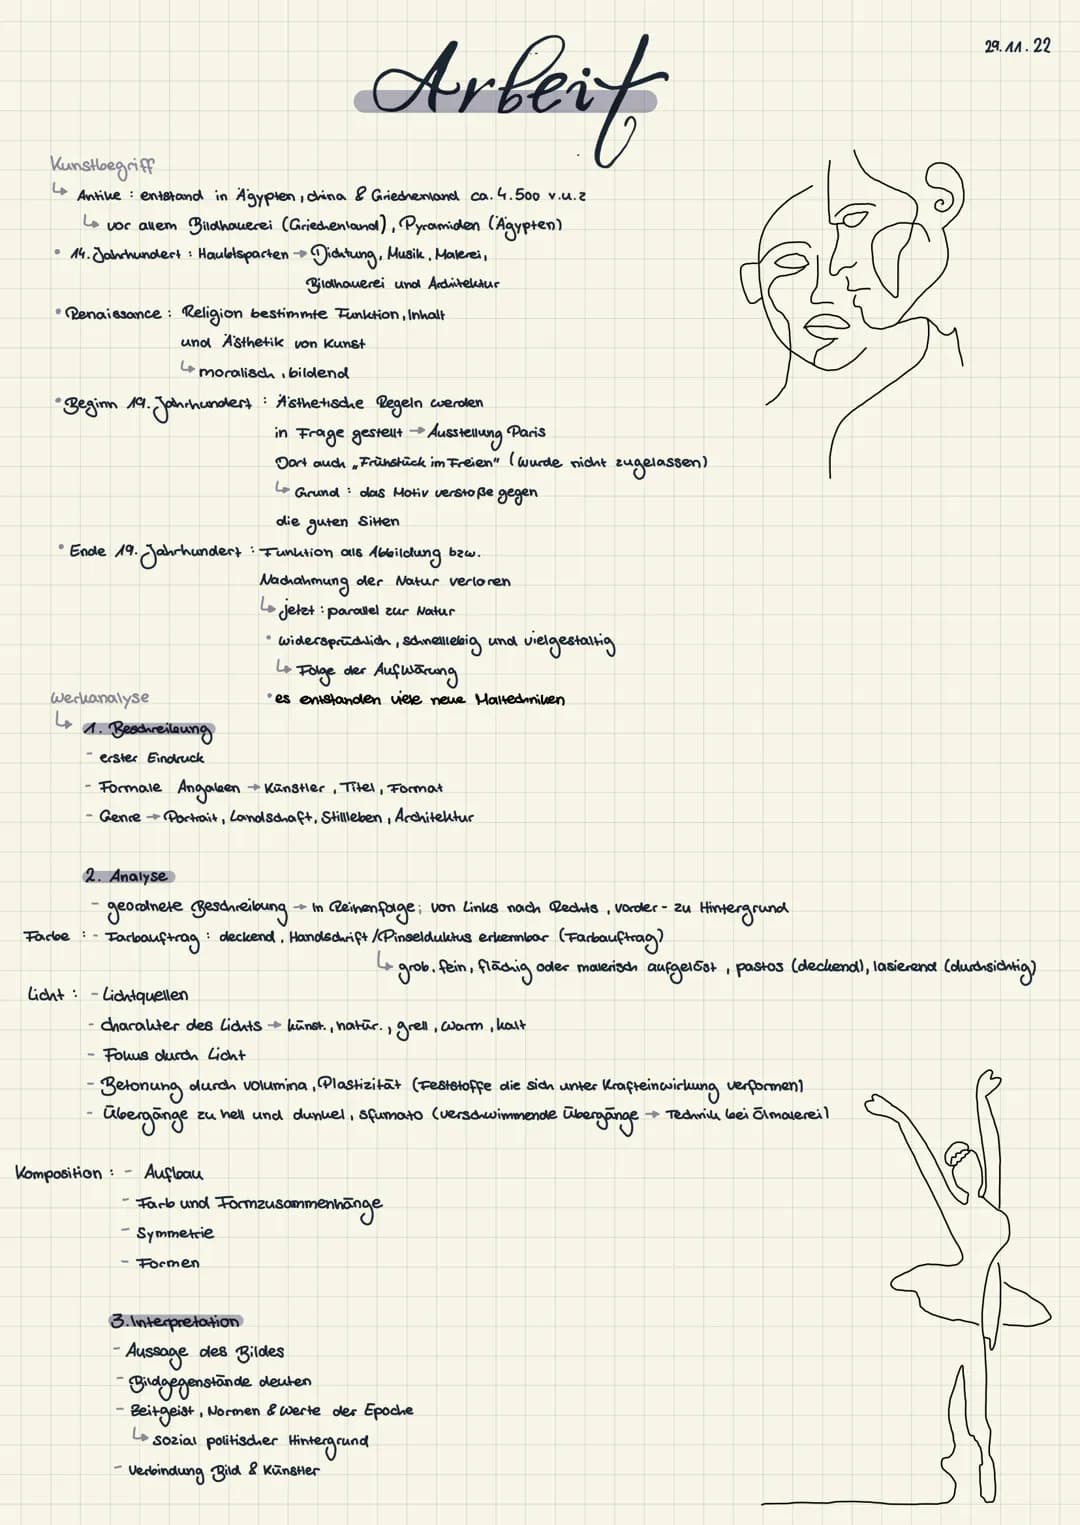 29.11.22
Arbeit
Kunstbegriff
↳ Antike : entstand in Ägypten, china & Griechenland ca. 4.500 v.u.z
↳ vor allem Bildhauerei (Griechenland), Pyramiden (Ägypten)
• 14. Jahrhundert : Haubtsparten → Dichtung, Musik, Malerei,
Bildhauerei und Architektur
• Renaissance : Religion bestimmte Funktion, Inhalt
und Ästhetik von Kunst
↳ moralisch, bildend
• Beginn 19. Jahrhundert : Ästhetische Regeln werden
in Frage gestellt → Ausstellung Paris
Dort auch „Frühstück im Freien" (wurde nicht zugelassen)
↳ Grund : das Motiv verstoße gegen
die guten Sitten
• Ende 19. Jahrhundert : Funktion als Abbildung bzw.
Nachahmung der Natur verloren
↳ jetzt : parallel zur Natur
• widersprüchlich, schnelllebig und vielgestaltig
↳ Folge der Aufklärung
• es entstanden viele neue Maltechniken
Werkanalyse
↳ 1. Beschreibung
- erster Eindruck
- Formale Angaben → Künstler, Titel, Format
- Genre → Portrait, Landschaft, Stillleben, Architektur
2. Analyse
- geordnete Beschreibung → In Reihenfolge; von Links nach Rechts, vorder- zu Hintergrund
Farbe : - Farbauftrag : deckend, Handschrift/Pinselduktus erkennbar (Farbauftrag)
↳ grob, fein, flächig oder malerisch aufgelöst, pastos (deckend), lasierend (durchsichtig)
Licht : - Lichtquellen
- charakter des Lichts → künst., natür., grell, warm, kalt
- Fokus durch Licht
- Betonung durch volumina, Plastizität (Feststoffe die sich unter Krafteinwirkung verformen)
- Übergänge zu hell und dunkel, sfumato (verschwimmende Übergänge → Technik bei Ölmalerei)
Komposition : - Aufbau
- Farb und Formzusammenhänge
- Symmetrie
- Formen
3. Interpretation
- Aussage des Bildes
- Bildgegenstände deuten
- Zeitgeist, Normen & Werte der Epoche
↳ sozial politischer Hintergrund
- Verbindung Bild & Künstler